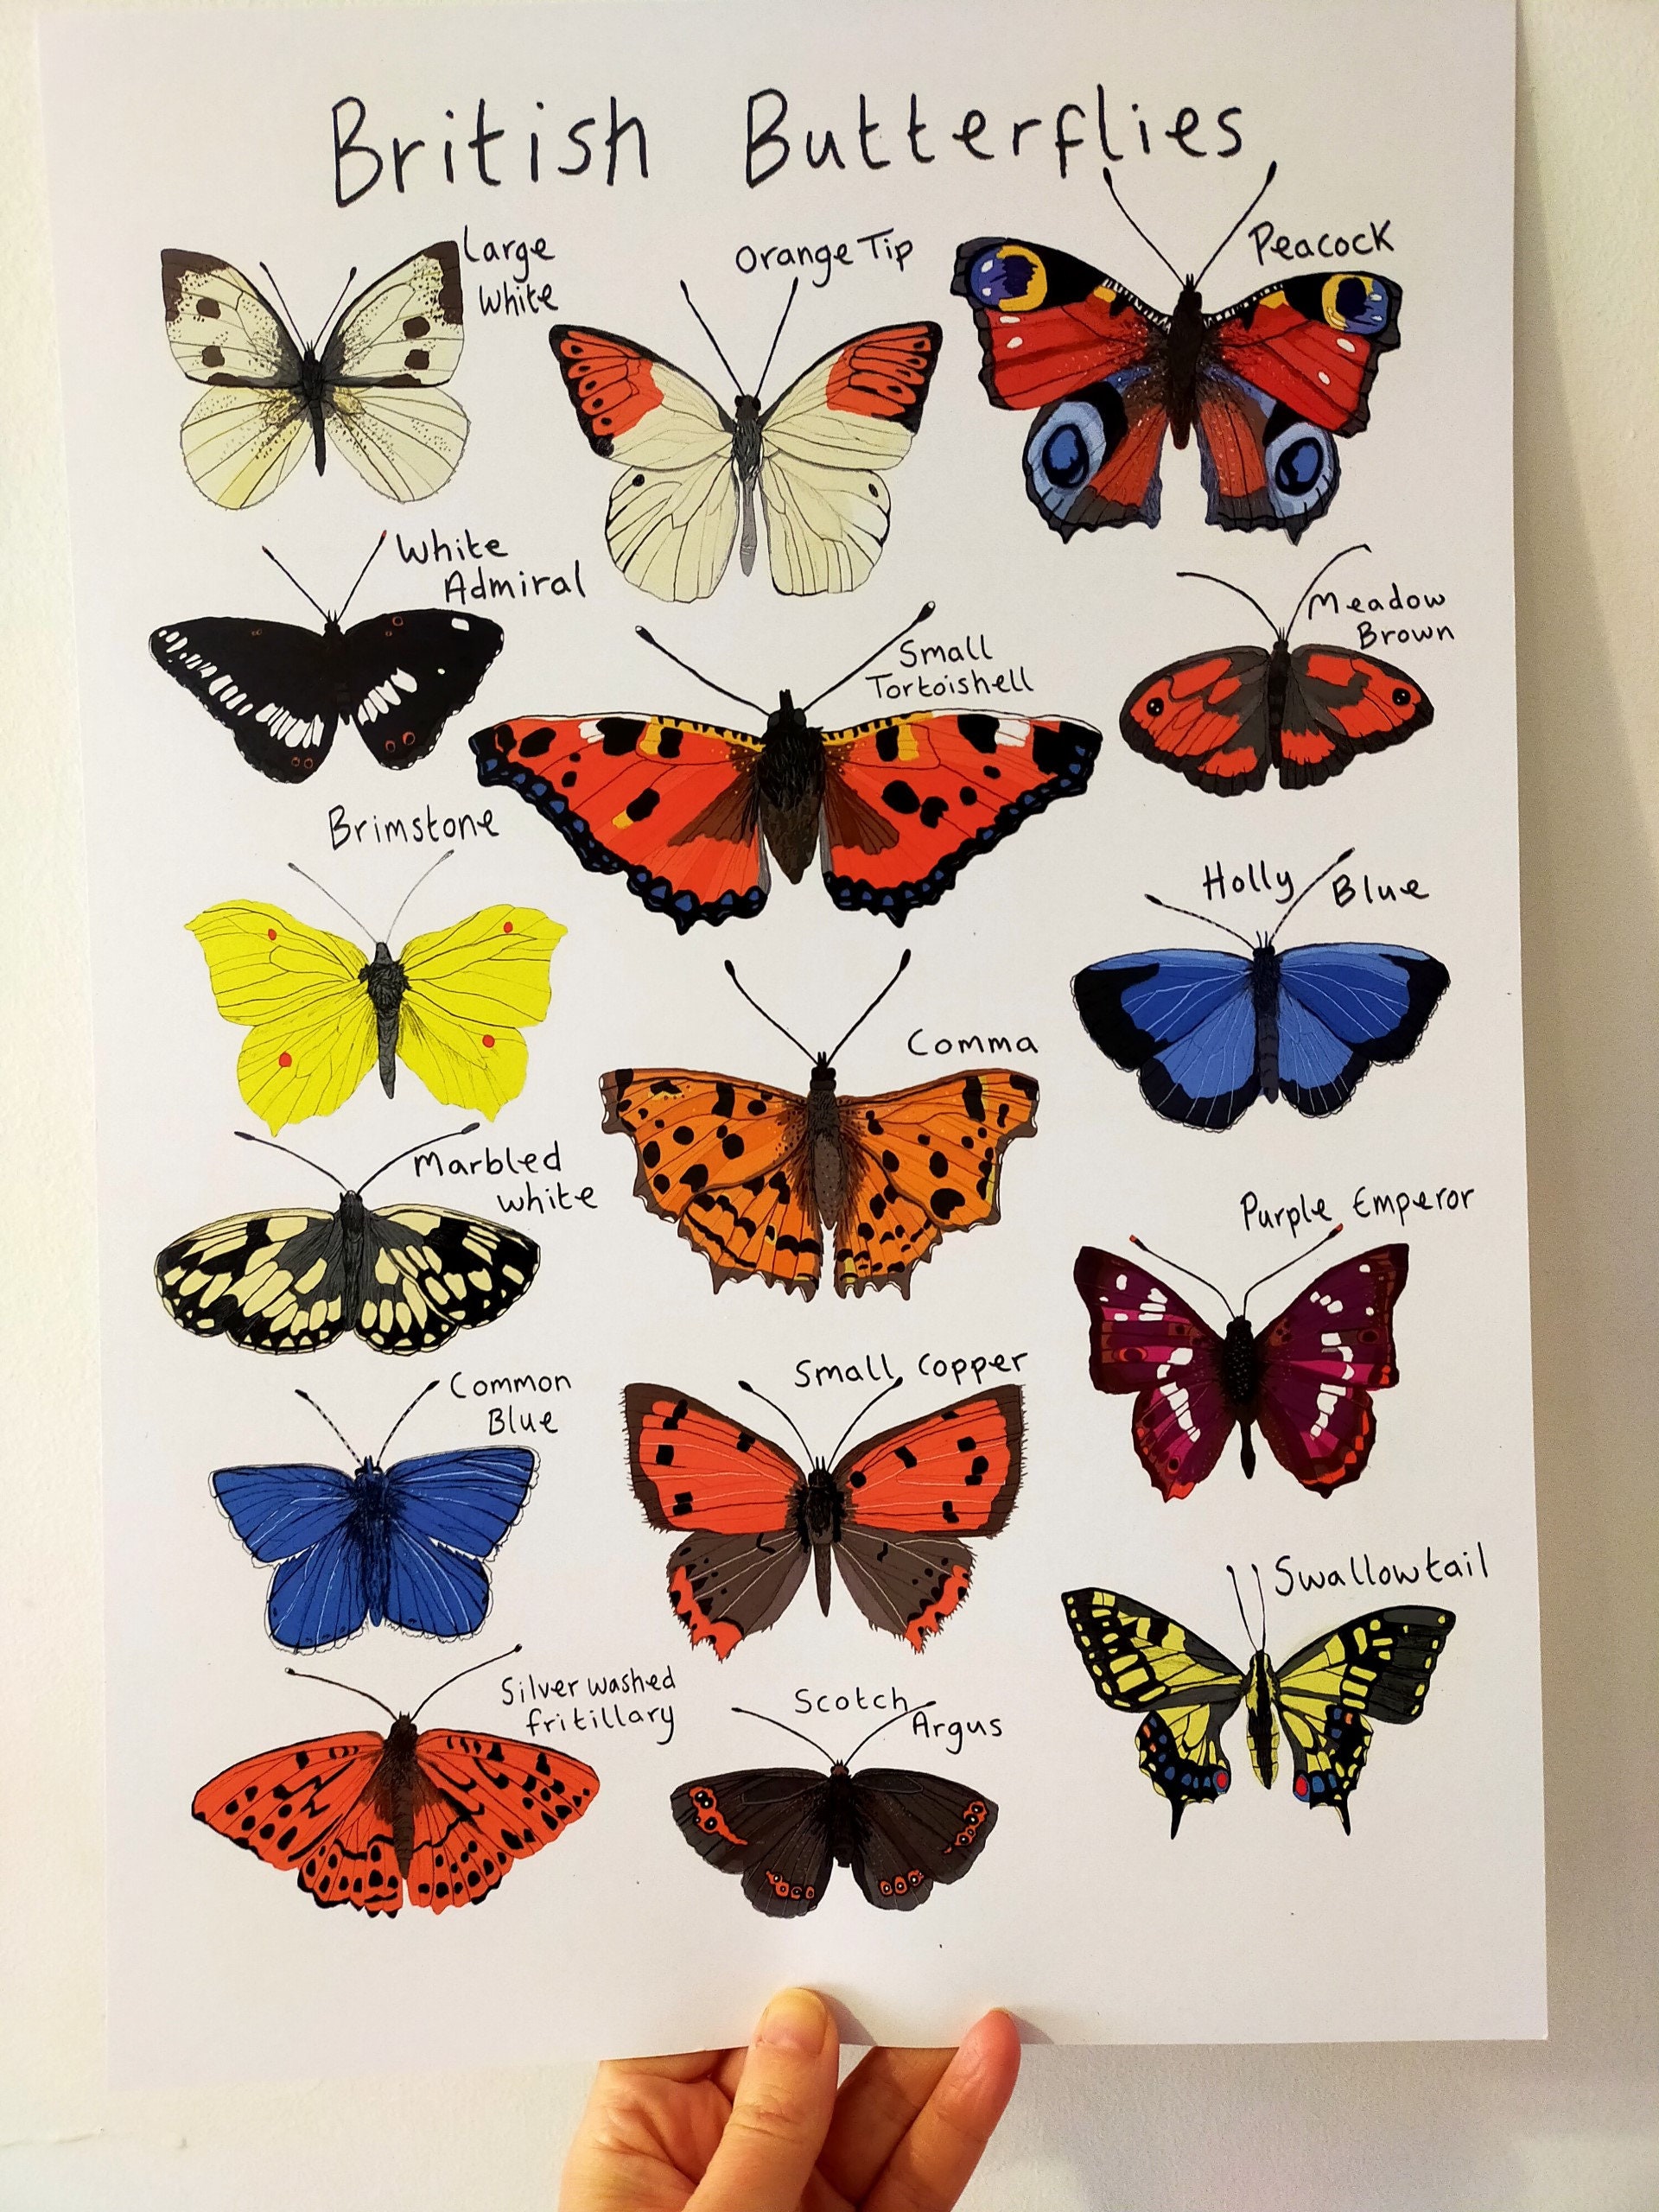 British Butterflies
Large
White
Orange Tip
Peacock
White
Admiral
Small
Tortoishell
Meadow
Brown
Brimstone
Holly Blue
Comma
Marbled
White
Purple Emperor
Common
Blue
Small Copper
Swallowtail
Silver washed
fritillary
Scotch
Argus